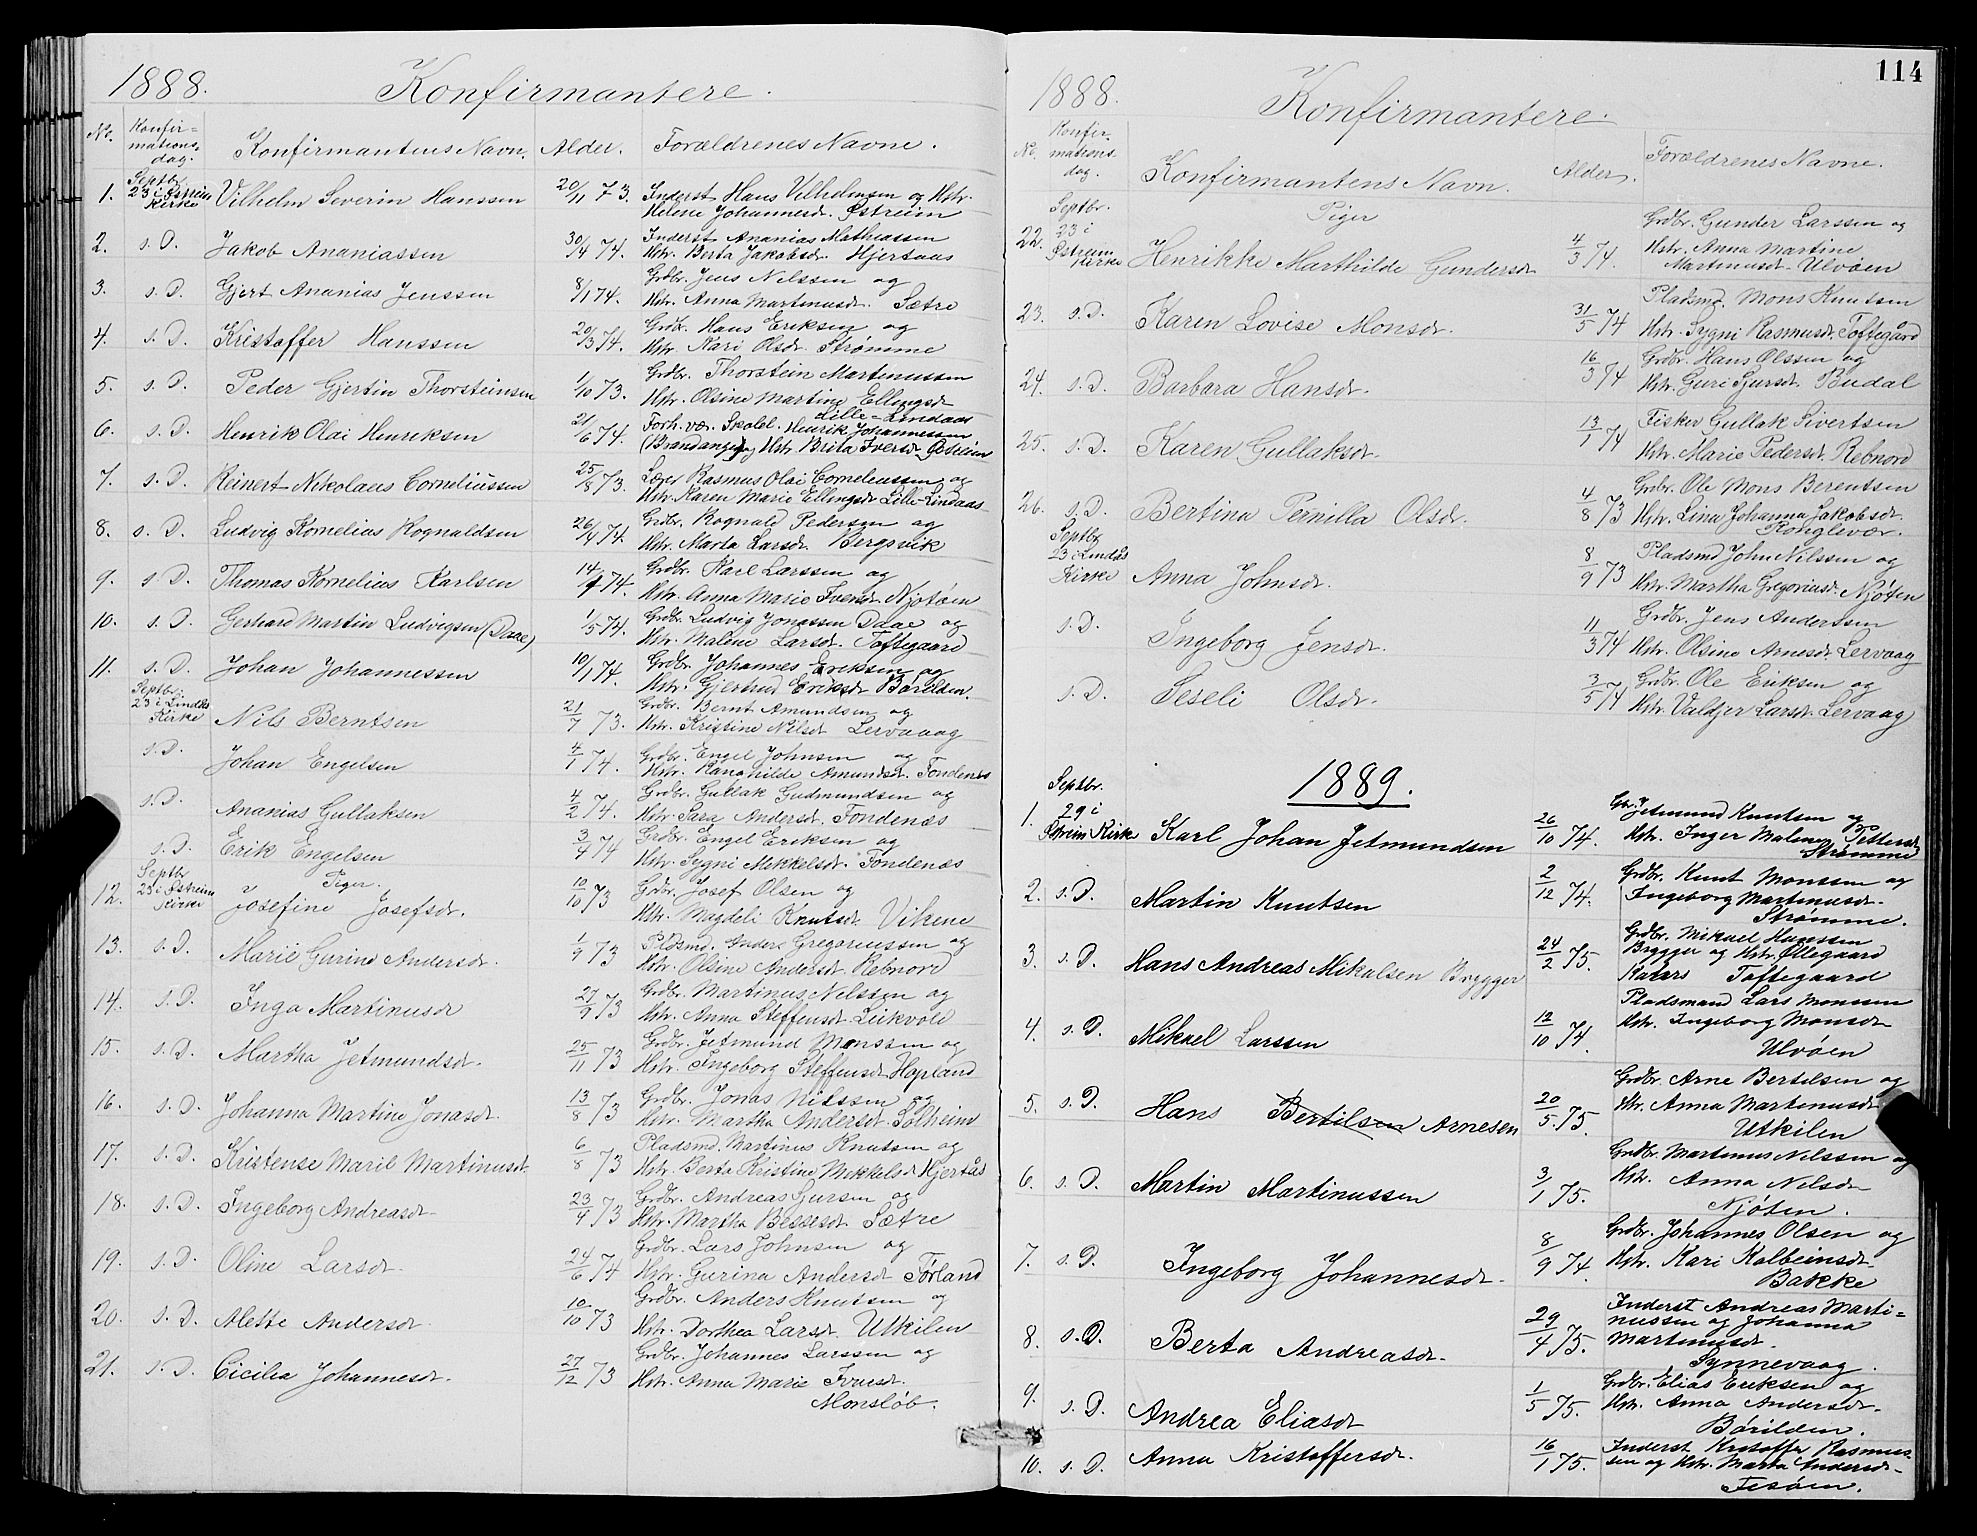 1888.
Konfirmantere.
No. Konfir-
mations-
dag. Konfirmantens Navn. Alder. Forældrenes Navne.
Septbr.
1. 23 i Østreim
Kirke Vilhelm Severin Hanssen 20/11 73. Inderst Hans Vilhelmsen og Hstr.
Helene Johannesdr. Østreim
2. s. D. Jakob Ananiassen 30/4 74. Inderst Ananias Mathiassen
Hstr. Berta Jakobsdr. Hjertaas
3. s. D. Gjert Ananias Jenssen 8/1 74. Grdbr. Jens Nilssen og
Hstr. Anna Martinusdr. Sætre
4. s. D. Kristoffer Hanssen 20/3 74. Grdbr. Hans Eriksen og
Hstr. Kari Olsdr. Strømme
5. s. D. Peder Gjertin Thorsteinsen 1/10 73. Grdbr. Thorstein Martinussen
Hstr. Olsine Martine Ellingsdr
Lille-Lindaas
6. s. D. Henrik Olai Henriksen 21/6 74. Forh. vær. Skolel. Henrik Johannessen
(Brandanger) og Hstr. Brita Iversdr. Østreim
7. s. D. Reinert Nikolaus Corneliussen 25/8 73. Lærer Rasmus Olai Corneliussen og
Hstr. Karen Marie Ellingsdr Lille-Lindaas
8. s. D. Ludvig Kornelius Rognaldsen 26/4 74. Grdbr. Rognald Pedersen og
Hstr. Marta Larsdr. Bergsvik
9. s. D. Thomas Kornelius Karlsen 14/4 74. Grdbr. Karl Larssen og
Hstr. Anna Marie Iversdr. Njøtøen
10. s. D. Gerhard Martin Ludvigsen (Daae) 1/5 74. Grdbr. Ludvig Jonassen Daae og
Hstr. Malene Larsdr. Toftegaard
11. s. D. Johan Johannessen 10/1 74. Grdbr. Johannes Eriksen og
Hstr. Gjertrud Eriksdr Børilden.
Septbr.
23 i Lindås
Kirke Nils Berntsen 21/7 73. Grdbr. Bernt Amundsen og
Hstr. Kristine Nilsdr Lervaag
s. D. Johan Engelsen 4/1 74. Grdbr. Engel Johnsen og
Hstr. Ranghilde Amundsdr. Fondenes
s. D. Ananias Gullaksen 4/2 74. Grdbr. Gullak Gudmundsen og
Hstr. Sara Andersdr. Fondenæs
s. D. Erik Engelsen 3/4 74 Grdbr. Engel Eriksen og
Hstr. Sygni Mikkelsdr. Fondenæs
Piger.
Septbr
12. 23 i Østreim
Kirke Josefine Josefsdr. 10/10 73 Grdbr. Josef Olsen og
Hstr. Magdeli Knutsdr. Vikene
13. s. D. Marie Gurine Andersdr. 1/9 73 Pldsmd. Anders Gregoriussen og
Hstr. Olsine Andersdr. Rebnord
14. s. D. Inga Martinusdr 27/9 73 Grdbr. Martinus Nilssen og
Hstr. Anna Steffensdr. Leikvold
15. s. D. Martha Jetmundsdr. 25/11 73 Grdbr. Jetmund Monssen og
Hstr. Ingeborg Steffensdr Hopland
16. s. D. Johanna Martine Jonasdr. 13/8 73 Grdbr. Jonas Nilssen og
Hstr. Martha Andersdr. Solheim
17. s. D. Kristense Marie Martinusdr. 6/8 73 Pladsmd. Martinus Knutsen og
Hstr. Berta Kristine Mikkelsdr Hjertås
18. s. D. Ingeborg Andreasdr 23/4 73 Grdbr. Andreas Gjursen og
Hstr. Martha Bessesdr. Sætre
19. s. D. Oline Larsdr. 24/6 74 Grdbr. Lars Johnsen og
Hstr. Gurina Andersdr Førland
20. s. D. Alette Andersdr 10/10 73 Grdbr. Anders Knutsen og
Hstr. Dorthea Larsdr. Utkilen
21. s. D. Cicilia Johannesdr. 27/12 73 Grdbr. Johannes Larssen og
Hstr. Anna Marie Ivarsdr.
Monsløb.
114
1888.
Konfirmantere.
No. Konfir-
mations-
dag. Konfirmantens Navn. Alder. Forældrenes Navne.
Piger
Septbr.
22. 23 i
Østreim
Kirke Henrikke Marthilde Gundersdr 4/3 74. Grdbr. Gunder Larssen og
Hstr. Anna Martine
Martinusdr. Ulvøen
23. s. D. Karen Lovise Monsdr. 31/5 74 Pladsmd. Mons Knutsen
Hstr. Sygni Rasmusdr. Toftegård
24. s. D. Barbara Hansdr. 16/3 74 Grdbr. Hans Olssen og
Hstr. Guri Gjursdr. Budal
25. s. D. Karen Gullaksdr. 13/1 74 Fisker Gullak Sivertsen
Hstr. Marie Pedersdr. Rebnord
26. s. D. Bertina Pernilla Olsdr. 4/8 73 Grdbr. Ole Mons Berentsen
Hstr. Lina Johanna Jakobsdr.
Ronglevær.
Septbr
23 i Lindås
Kirke Anna Johnsdr. 8/9 73 Pladsmd John Nilssen og
Hstr. Martha Gregoriusdr. Njøten
s. D. Ingeborg Jensdr. 11/3 74 Grdbr. Jens Andersen
Hstr. Olsine Arnesdr. Lervaag
s. D. Seseli Olsdr. 3/5 74 Grdbr. Ole Eriksen og
Hstr. Valdjer Larsdr. Lervaag
1889.
Septbr.
1. 29 i
Østreim Kirke Karl Johan Jetmundsen 26/10 74. Gbr. Jetmund Knutsen og
Hstr. Inger Malena Pettersdr
Strømme
2. s. D. Martin Knutsen 2/12 74. Grdbr. Knut Monssen og
Ingeborg Martinusdr.
Strømme.
3. s. D. Hans Andreas Mikalsen Brygger 24/2 75. Grdbr. Mikael Hanssen
Brygger og Hstr. Øllegaard
Kalars Toftegaard
4. s. D. Mikael Larssen 12/10 74. Pladsmand Lars Monssen
Hstr. Ingeborg Monsdr
Ulvøen
5. s. D. Hans Bertilsen Arnesen 20/5 75. Grdbr. Arne Bertilsen og
Hstr. Anna Martinusdr
Utkilen
6. s. D. Martin Martinussen 3/1 75. Grdbr. Martinus Nilssen og
Hstr. Anna Nilsdr
Njøten.
7. s. D. Ingeborg Johannesdr. 8/9 74. Grdbr. Johannes Olsen og
Hstr. Kari Kolbeinsdr
Bakke
8. s. D. Berta Andreasdr. 29/4 75. Inderst Andreas Marti-
nussen og Johanna
Martinusdr.
Synnevaag.
9. s. D. Andrea Eliasdr 1/5 75. Grdbr. Elias Eriksen og
Hstr. Anna Andersdr.
Børilden.
10. s. D. Anna Kristoffersdr. 16/1 75. Inderst Kristoffer Rasmus-
sen og Hstr. Marta Andersdr.
Fesøen.